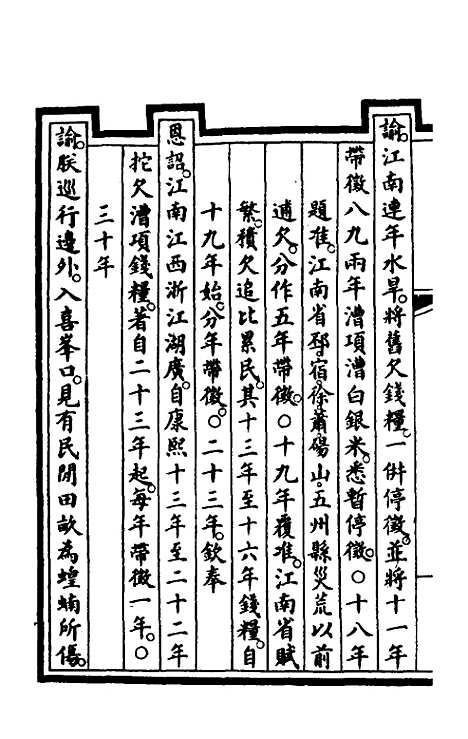 諭江南連年水旱將舊欠錢糧一併停徵並將十一年
帶徵八九兩年漕項漕白銀米悉暫停徵○十八年
題准江南省邳宿徐蕭碭山五州縣災荒以前
逋欠分作五年帶徵○十九年覆准江南省賦
繁積欠追比累民其十三年至十六年錢糧自
十九年始分年帶徵○二十三年欽奉
恩詔江南江西浙江湖廣自康熙十三年至二十二年
拕欠漕項錢糧著自二十三年起每年帶徵一年○
三十年
諭朕巡行邊外入喜峯口見有民閒田畝為蝗蝻所傷